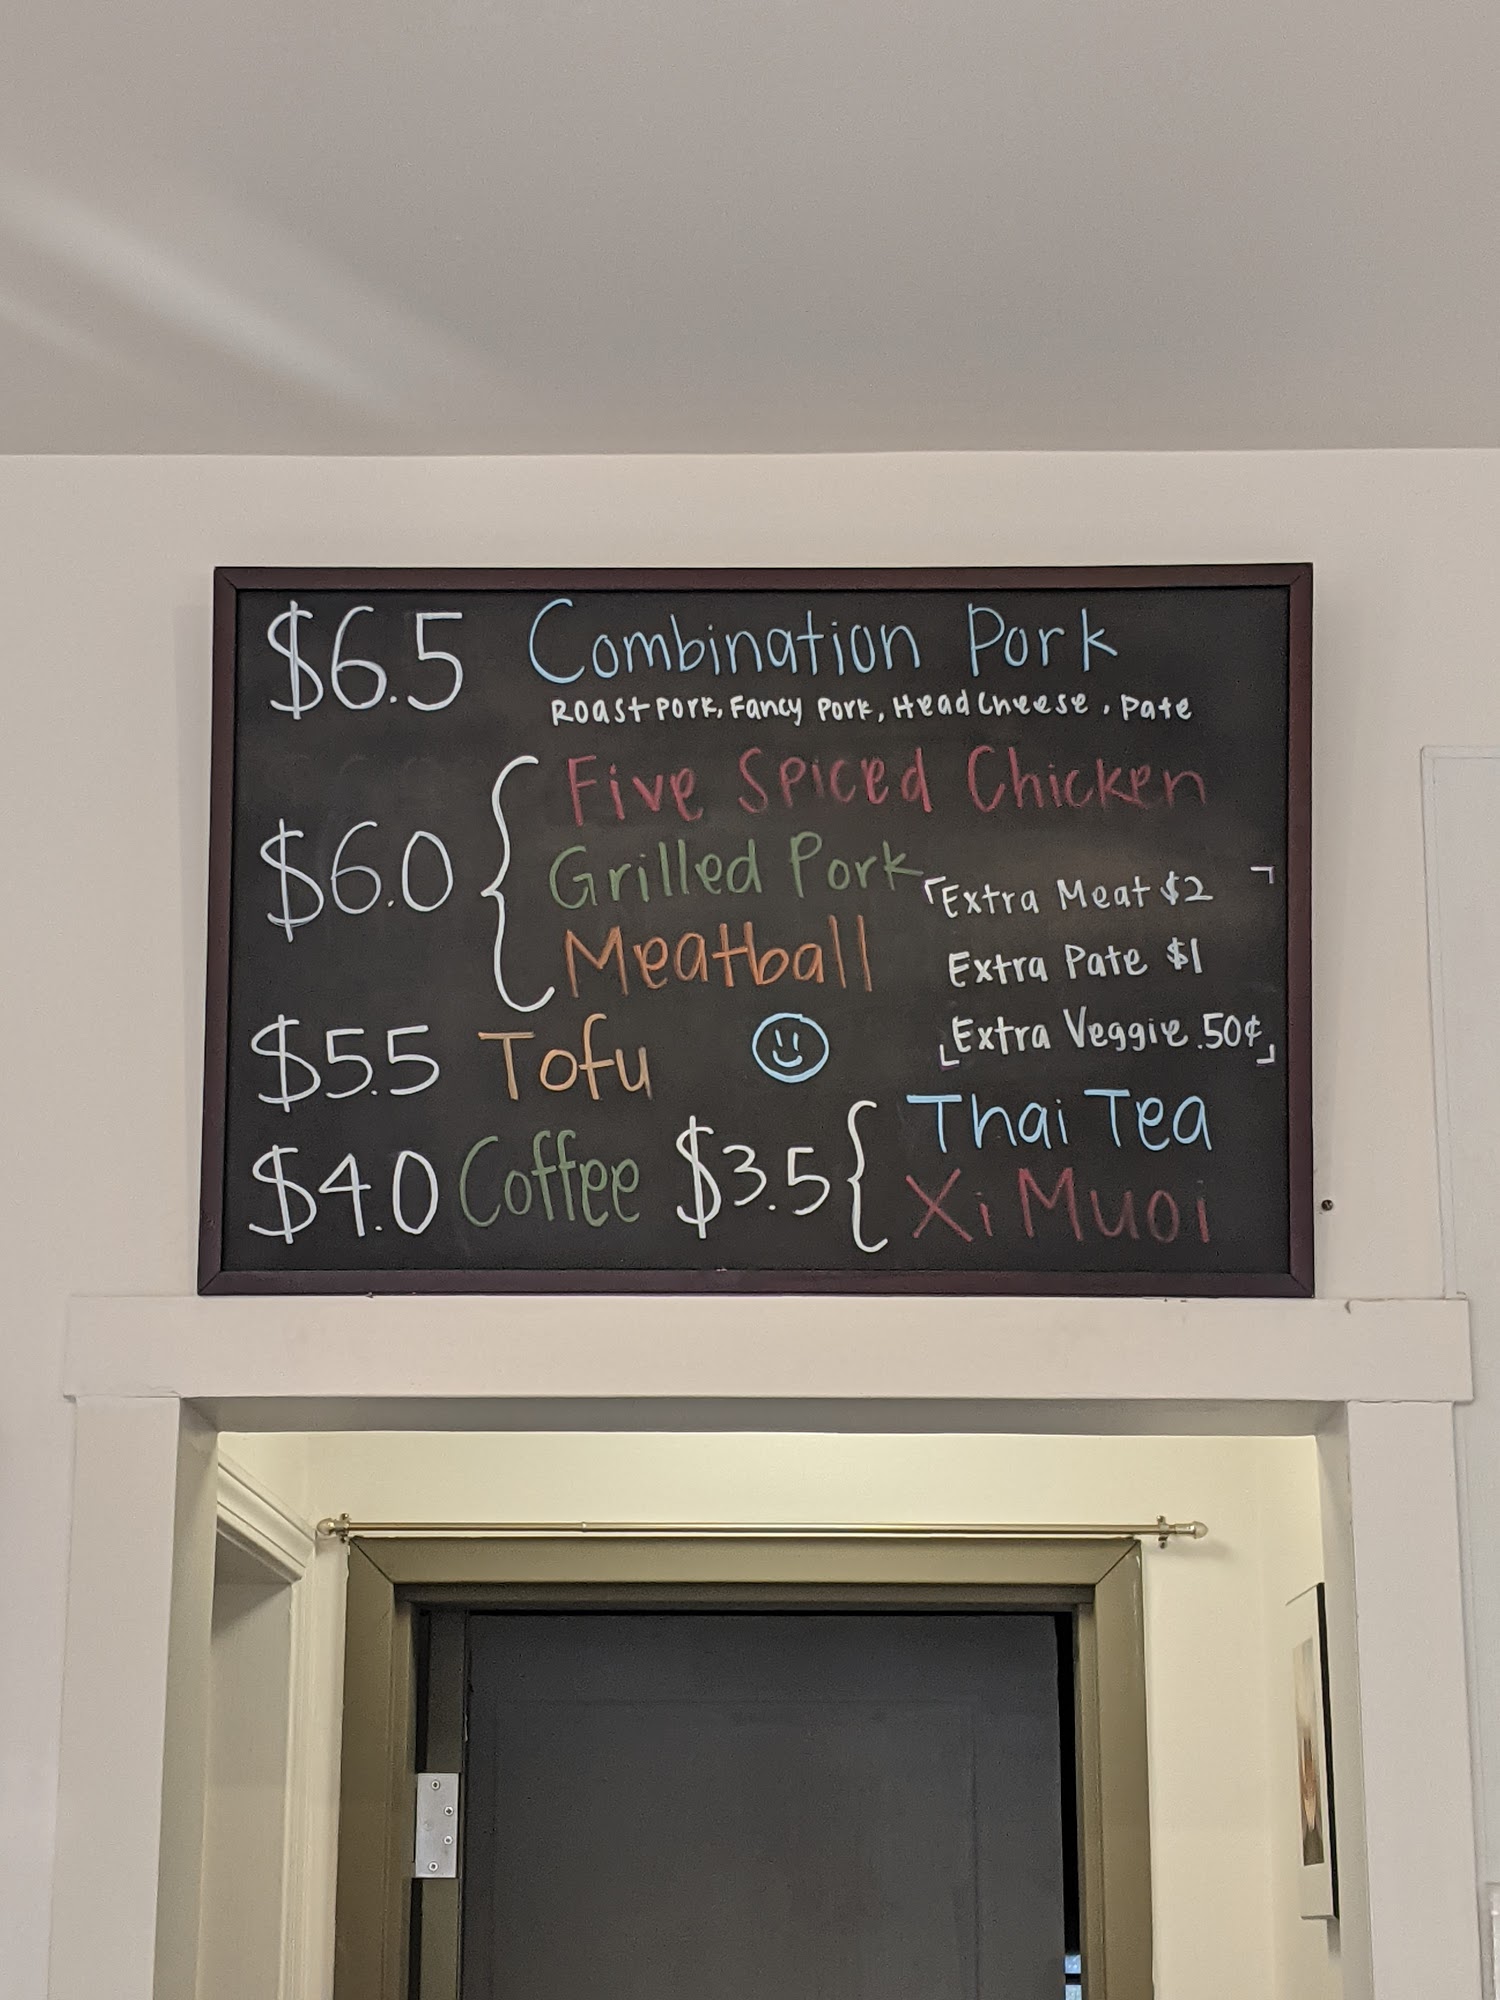 $6.5 Combination Pork
Roast Pork, Fancy Pork, Head Cheese, Pate
Five Spiced Chicken
$6.0 Grilled Pork
Meatball
Extra Meat $2
Extra Pate $1
Extra Veggie .50¢
$5.5 Tofu
$4.0 Coffee
$3.5 Thai Tea
Xi Muoi